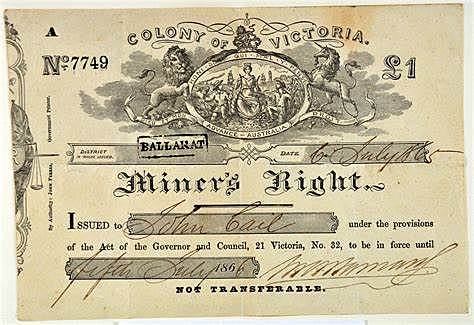 A
COLONY OF VICTORIA.
No. 7749
£1
ADVANCE AUSTRALIA
DISTRICT
IN WHICH ISSUED.
BALLARAT
DATE
6 July 1865
Miner's Right.
ISSUED to John Cail under the provisions
of the Act of the Governor and Council, 21 Victoria, No. 32, to be in force until
fifth July 1866
NOT TRANSFERABLE.
By Authority: JOHN FERRES, Government Printer.